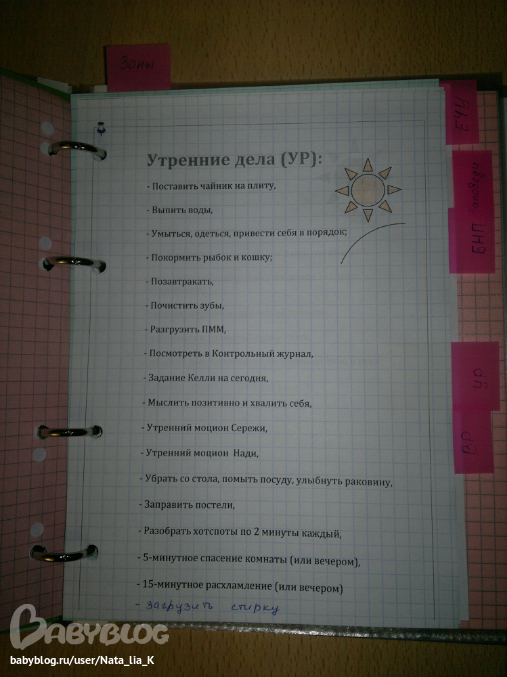 Зоны
Утренние дела (УР):
- Поставить чайник на плиту,
- Выпить воды,
- Умыться, одеться, привести себя в порядок;
- Покормить рыбок и кошку;
- Позавтракать,
- Почистить зубы,
- Разгрузить ПММ,
- Посмотреть в Контрольный журнал,
- Задание Келли на сегодня,
- Мыслить позитивно и хвалить себя,
- Утренний моцион Сережи,
- Утренний моцион Нади,
- Убрать со стола, помыть посуду, улыбнуть раковину,
- Заправить постели,
- Разобрать хотспоты по 2 минуты каждый,
- 5-минутное спасение комнаты (или вечером),
- 15-минутное расхламление (или вечером)
- загрузить стирку
БНП
УР
ВР
BABYBLOG
babyblog.ru/user/Nata_lia_K